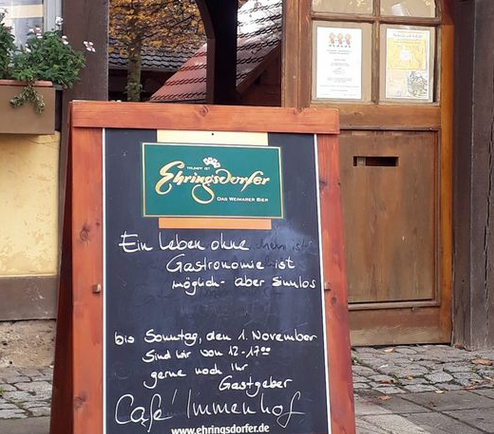 TRUMPF IST
Ehringsdorfer
DAS WEIMARER BIER
Ein Leben ohne
Gastronomie ist
möglich - aber sinnlos
bis Sonntag, den 1. November
sind wir von 12-17⁰⁰
gerne noch Ihr
Gastgeber
Café Immenhof
www.ehringsdorfer.de